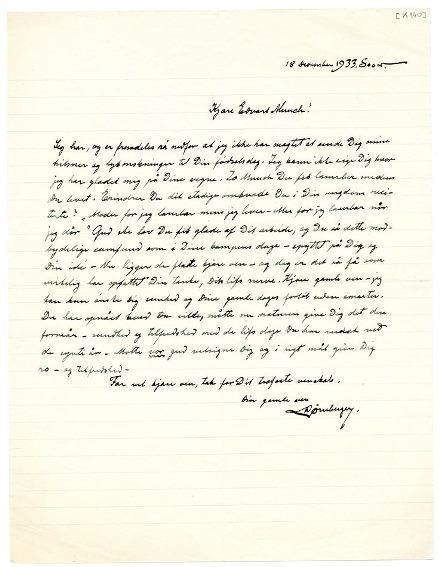 [K 140]
18 December 1933. Soon.
Kjære Edvard Munch!
Jeg har, og er fremdeles så nedfor at jeg ikke har magtet at sende Dig mine
hilsner og lykønskninger til Din fødselsdag. Jeg kan ikke sige Dig hvor
jeg har glædet mig på Dine vegne. Du Munch Du fik laurbær medens
Du levet. Erindrer Du dit stadige omkvæde Du i Din ungdom
? "Moder får jeg laurbær mens jeg lever – eller får jeg laurbær når
jeg dør" Gud ske lov Du fik glæde af Dit arbeide, og Du så dette
samfund som i Dine kampens dage – spyttet på Dig og
Din ide – Nu ligger de flate kjære ven – og dog er det så få som
virkelig har opfattet Din tanke, Dit livs nerve. Kjære gamle ven – jeg
kan kun ønske Dig sundhed og Dine gamle dages forløb uden smerter.
Du har opnået hvad Du vilde, måtte nu naturen give Dig det den
formår – sundhed og tilfredshed med de livs dage Du har
de år – Måtte vor gud velsigne Dig og i rigt mål give Dig
ro – og tilfredshed –
Far vel kjære ven, tak for Dit trofaste venskab.
Din gamle ven